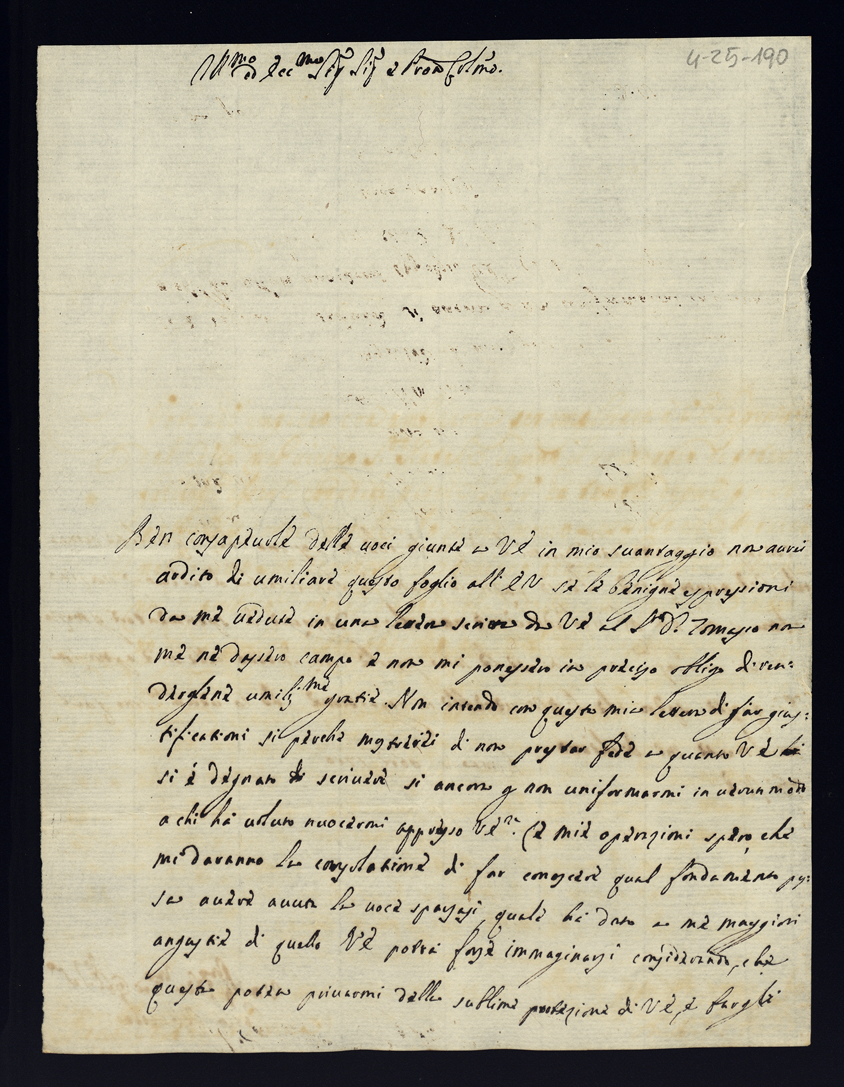 4-25-190
Ill.mo ed Ecc.mo Sig.r Sig.r e Pron Col.mo
Ben consapeuole delle uoci giunte a V E in mio suantaggio non aurei
ardito di umiliare questo foglio all' E V se le benigne espressioni
da me uedute in una lettera scritta da V E al S.r D.r Tomaso non
me ne dassero campo e non mi ponessero in preciso obligo di ren=
dergliene umilis.me gratie. Non intendo con questa mia lettera di far gius=
tificationi si perche mostrerei di non prestar fede a quanto V E
si è degnato scriuere si ancora p non uniformarmi in uerun modo
a chi hà uoluto nuocermi appresso V E. Le mie operazioni spero, che
mi daranno la consolatione di far conoscere qual fondamento pos=
sa auere auuto la uoce sparsasi, quale hà dato a me maggiori
angustie di quelo V E potrà forse immaginarsi considerando, che
questa potea priuarmi della sublime protezione di V E, e fargli